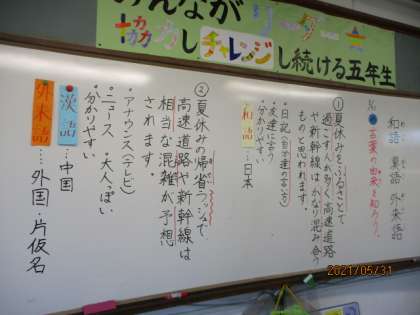 みんなが
リーダー
協力しチャレンジし続ける五年生
和語 漢語 外来語
め 言葉の由来を知ろう。
①夏休みをふるさとで
過ごす人が多く、高速道路
や新幹線はかなり混み合う
ものと思われます。
・日記(自分達の言葉)
・友達に言う
・分かりやすい
和語…日本
②夏休みの帰省ラッシュで
高速道路や新幹線は
相当な混雑が予想
されます。
・アナウンス(テレビ)
・ニュース 大人っぽい
・分かりやすい
漢語…中国
外来語…外国・片仮名
2021/05/31